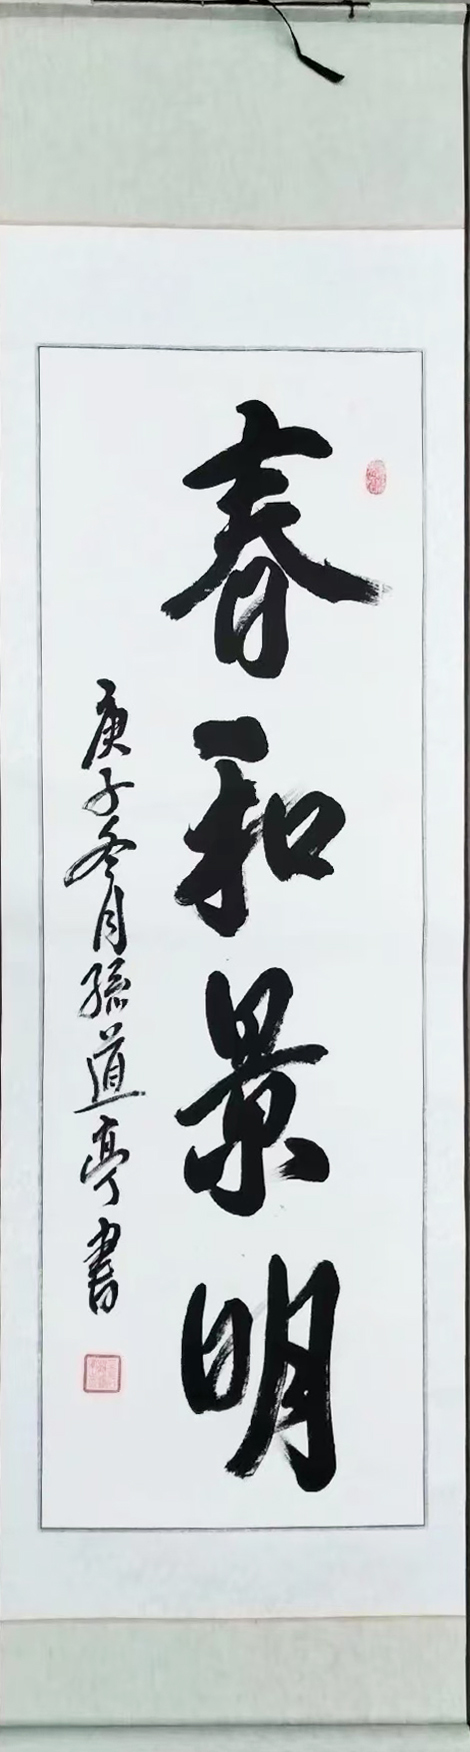 春和景明
庚子冬月孫道亭書